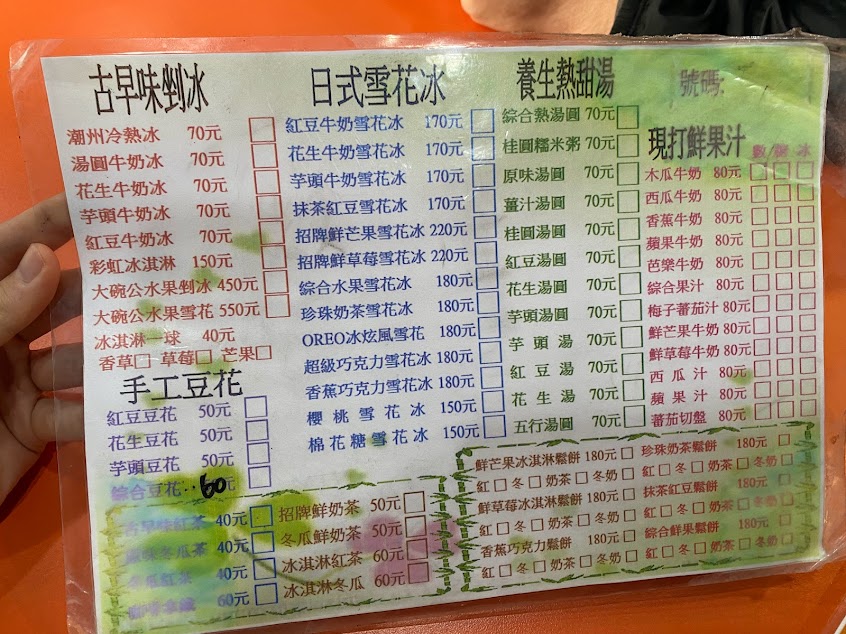 古早味剉冰
潮州冷熱冰 70元
湯圓牛奶冰 70元
花生牛奶冰 70元
芋頭牛奶冰 70元
紅豆牛奶冰 70元
彩虹冰淇淋 150元
大碗公水果剉冰 450元
大碗公水果雪花 550元
冰淇淋一球 40元
香草□ 草莓□ 芒果□
手工豆花
紅豆豆花 50元
花生豆花 50元
芋頭豆花 50元
綜合豆花 60元
古早味紅茶 40元
冬瓜茶 40元
冬瓜紅茶 40元
60元
招牌鮮奶茶 50元
冬瓜鮮奶茶 50元
冰淇淋紅茶 60元
冰淇淋冬瓜 60元
日式雪花冰
紅豆牛奶雪花冰 170元
花生牛奶雪花冰 170元
芋頭牛奶雪花冰 170元
抹茶紅豆雪花冰 170元
招牌鮮芒果雪花冰 220元
招牌鮮草莓雪花冰 220元
綜合水果雪花冰 180元
珍珠奶茶雪花冰 180元
OREO冰炫風雪花 180元
超級巧克力雪花冰 180元
香蕉巧克力雪花冰 180元
櫻桃雪花冰 150元
棉花糖雪花冰 150元
養生熱甜湯
綜合熱湯圓 70元
桂圓糯米粥 70元
原味湯圓 70元
薑汁湯圓 70元
桂圓湯圓 70元
紅豆湯圓 70元
花生湯圓 70元
芋頭湯圓 70元
芋頭湯 70元
紅豆湯 70元
花生湯 70元
五行湯圓 70元
號碼:
現打鮮果汁
數/糖 冰
木瓜牛奶 80元
西瓜牛奶 80元
香蕉牛奶 80元
蘋果牛奶 80元
芭樂牛奶 80元
綜合果汁 80元
梅子蕃茄汁 80元
鮮芒果牛奶 80元
鮮草莓牛奶 80元
西瓜汁 80元
蘋果汁 80元
蕃茄切盤 80元
鮮芒果冰淇淋鬆餅 180元
紅□ 冬□ 奶茶□ 冬奶□
鮮草莓冰淇淋鬆餅 180元
紅□ 冬□ 奶茶□ 冬奶□
香蕉巧克力鬆餅 180元
紅□ 冬□ 奶茶□ 冬奶□
珍珠奶茶鬆餅 180元
紅□ 冬□ 奶茶□ 冬奶□
抹茶紅豆鬆餅 180元
紅□ 冬□ 奶茶□ 冬奶□
綜合鮮果鬆餅 180元
紅□ 冬□ 奶茶□ 冬奶□